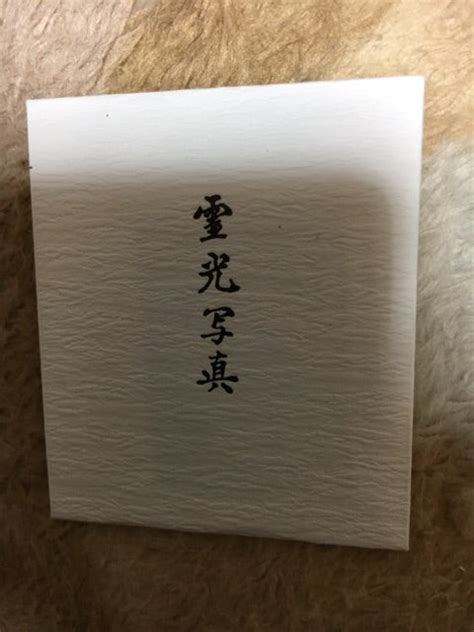 霊光写真